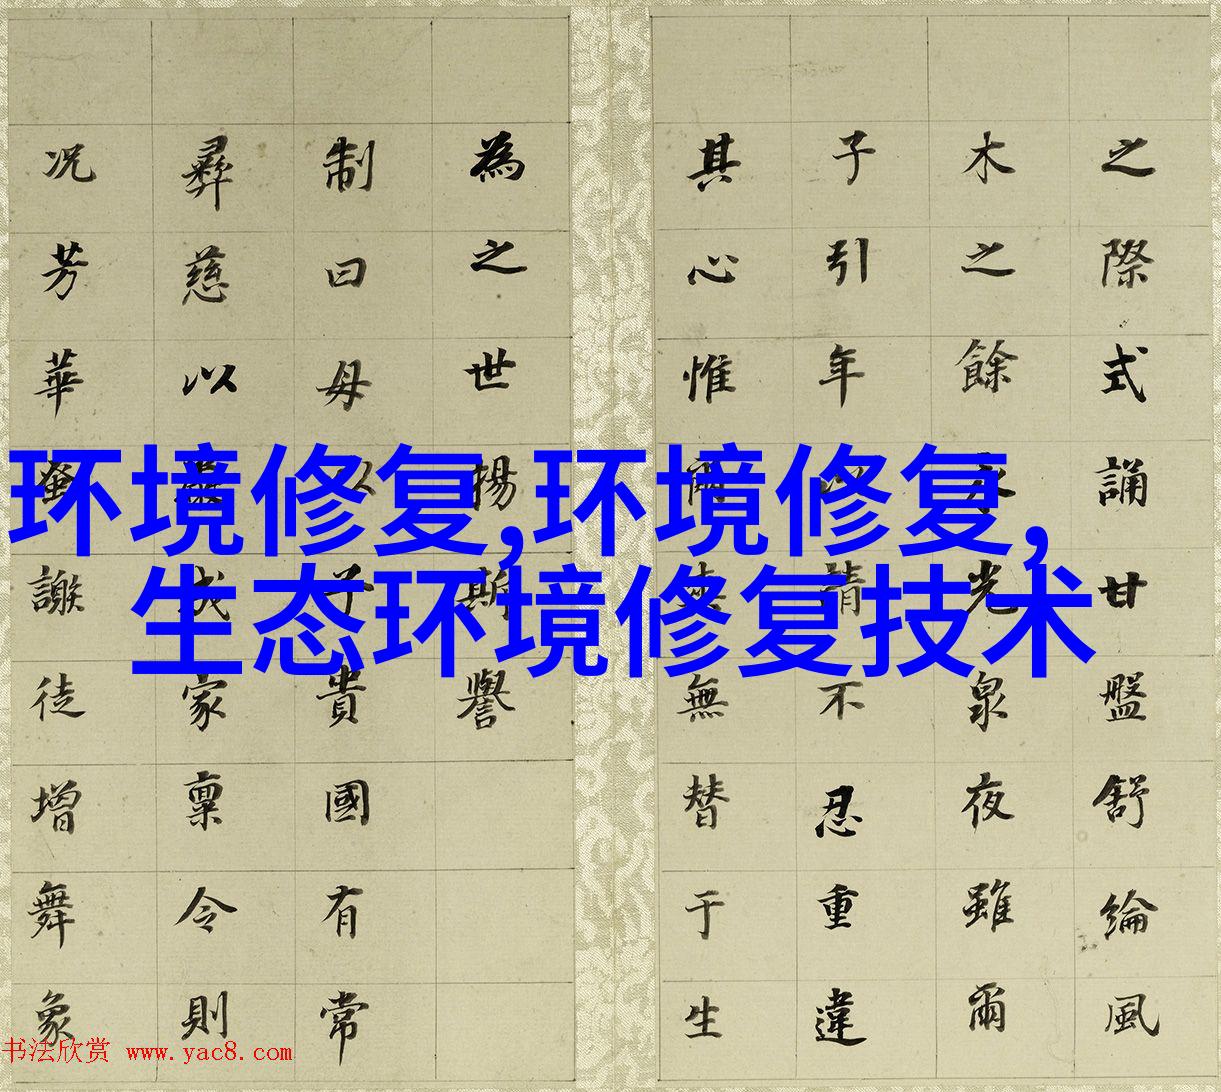 环境修复,环境修复,
生态环境修复技术
之際式誦廿盤舒綸風
木之餘光泉夜雖爾
子引年以情不忍重違
其心惟無替于生
為之世揚斯譽
制曰母以子貴國有常
彝慈以嚴成家稟令則
况芳華蚤謝徒增舞象
书法欣赏 www.yac8.com